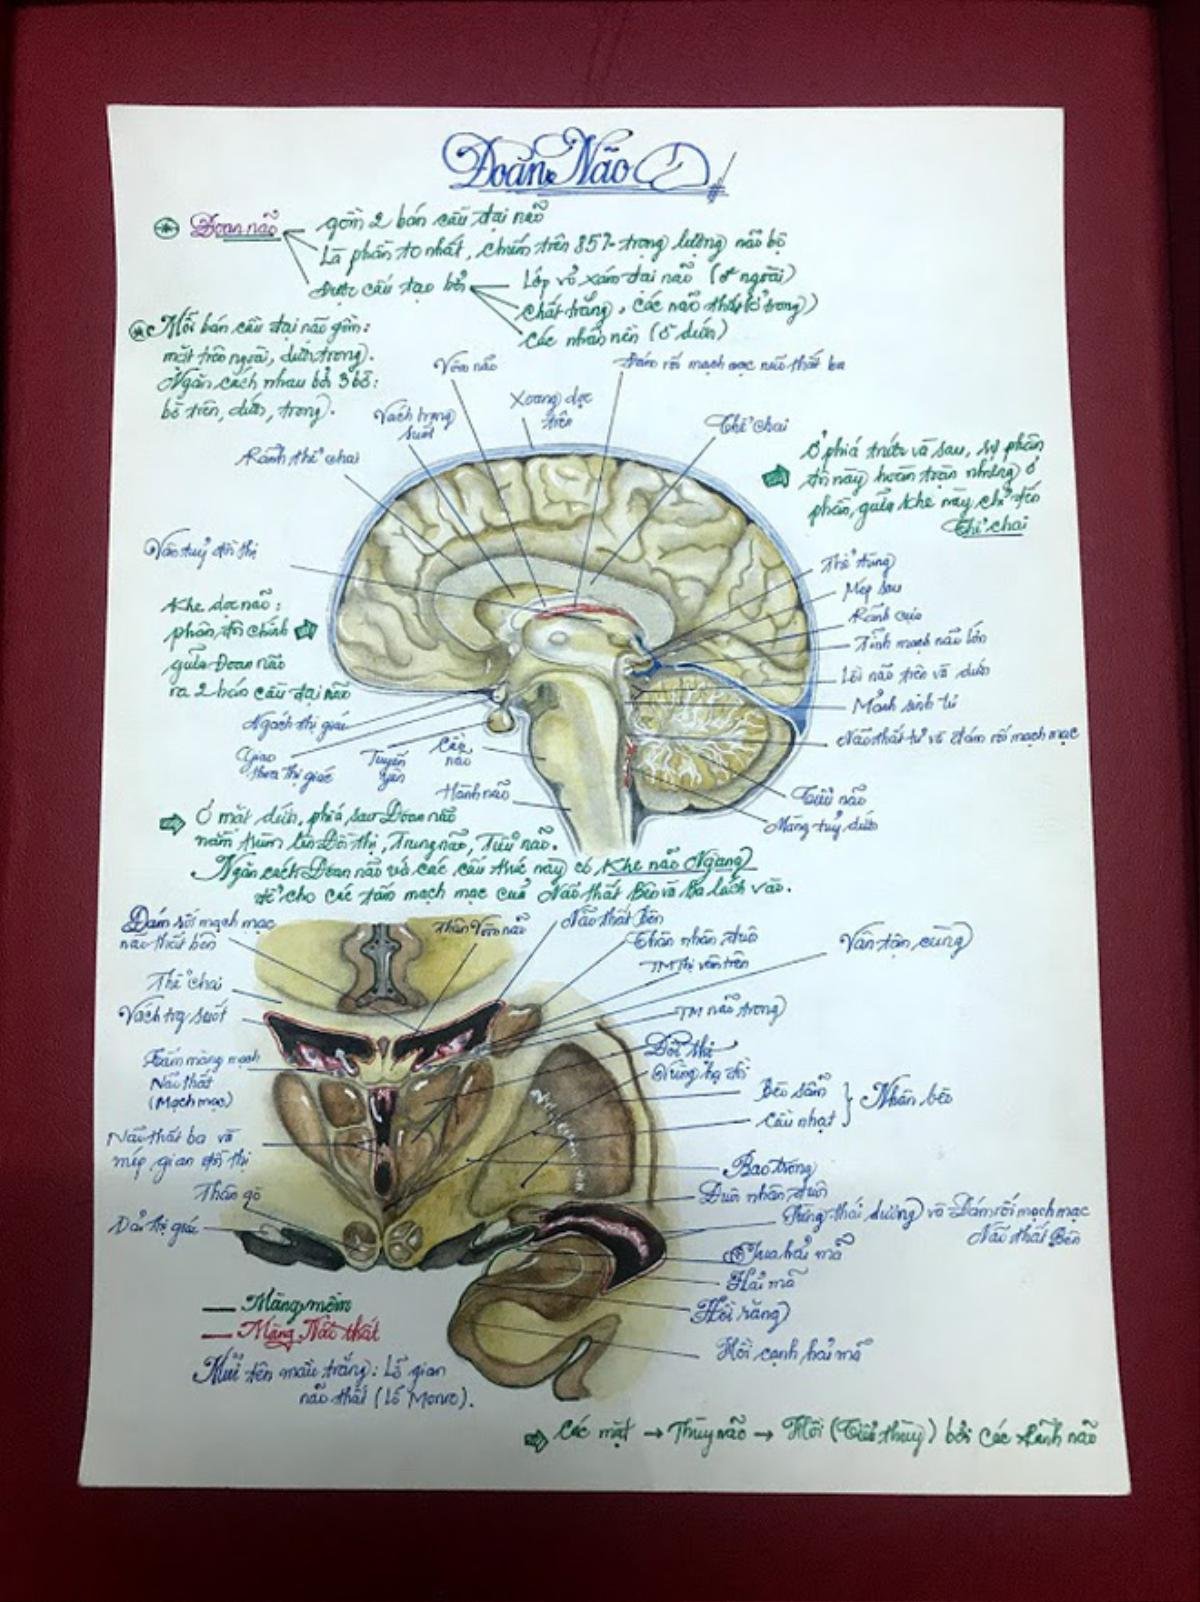 Đoan Não
Đoan não
gồm 2 bán cầu đại não
Là phần to nhất, chiếm trên 85% trọng lượng não bộ
Được cấu tạo bởi
Lớp vỏ xám đại não (ở ngoài)
chất trắng, các não thất (ở trong)
các nhân nền (ở dưới)
Mỗi bán cầu đại não gồm:
mặt trên ngoài, dưới, trong).
Ngăn cách nhau bởi 3 bờ:
bờ trên, dưới, trong).
Vòm não
Đám rối mạch mạc não thất ba
Xoang dọc
trên
Vách trong
suốt
Thể chai
Rãnh thể chai
Ở phía trước và sau, sự phân
đôi này hoàn toàn nhưng ở
phần giữa khe này chỉ đến
Thể chai
Vân tuỷ đồi thị
Khe dọc não:
phân đôi chính
giữa Đoan não
ra 2 bán cầu đại não
Thể tùng
Mép sau
Rãnh cựa
Tĩnh mạch não lớn
Lồi não trên và dưới
Mảnh sinh tư
Não thất tư và đám rối mạch mạc
Tiểu não
Màng tuỷ dưới
Ngách thị giác
Giao
thoa thị giác
Tuyến
yên
Cầu
não
Hành não
Ở mặt dưới, phía sau Đoan não
nằm trùm lên Đồi thị, Trung não, Tiểu não.
Ngăn cách Đoan não và các cấu trúc này có Khe não Ngang
để cho các tấm mạch mạc của Não thất Bên và Ba lách vào.
Đám rối mạch mạc
não thất bên
Thân Vòm não
Não thất Bên
Thân nhân đuôi
TM Thị vân trên
Vân tận cùng
Thể chai
Vách tg suốt
TM não trong
Tấm màng mạch
Não thất
(Mạch mạc)
Đồi thị
Vùng hạ đồi
Bèo sẫm
Cầu nhạt
Nhân bèo
Não thất ba và
mép gian đồi thị
Bao trong
Thân gò
Đuôi nhân đuôi
Dải thị giác
Sừng thái dương và Đám rối mạch mạc
Não thất Bên
Tua hải mã
Hải mã
Hồi răng
Hồi cạnh hải mã
Màng mềm
Màng Não thất
Mũi tên màu trắng: Lỗ gian
não thất (Lỗ Monro).
Các mặt → Thùy não → Hồi (Tiểu thùy) bởi các rãnh não